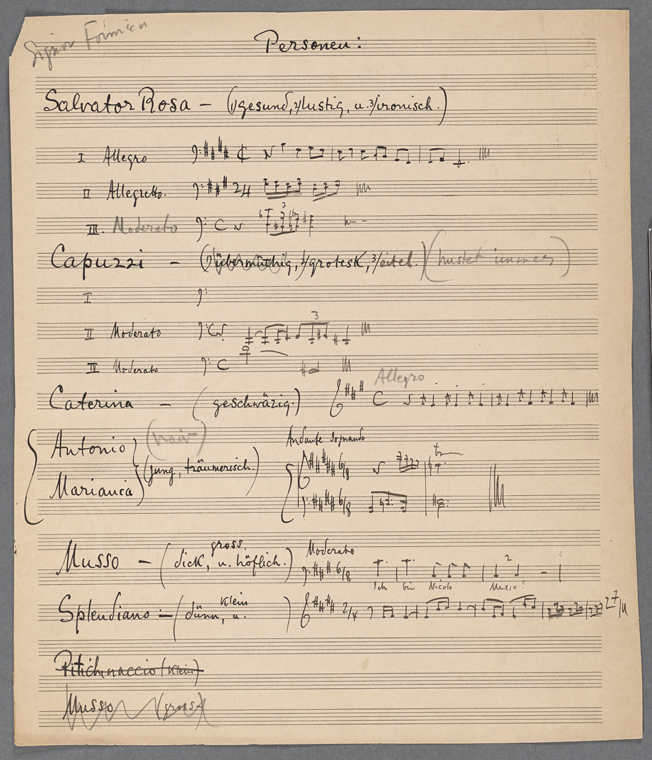 Signor Formica
Personen:
Salvator Rosa – (1/gesund, 2/lustig, u. 3/ironisch.)
I Allegro
II Allegretto. 2/4
3
III. Moderato
Capuzzi – (1/übermüthig, 2/grotesk, 3/eitel.) (hustet immer)
I
3
II Moderato
III Moderato
Allegro
Caterina – (geschwäzig.)
Andante sognando
Antonio (naiv) 6/8 tr
(jung, träumerisch.)
Marianna 6/8
gross,
Musso – (dick, u. höflich.) Moderato 6/8 2
Ich bin Nicolo Musso!
klein
Splendiano – (dünn, u. ) 2/4
Pitichinaccio (klein)
Musso (gross)